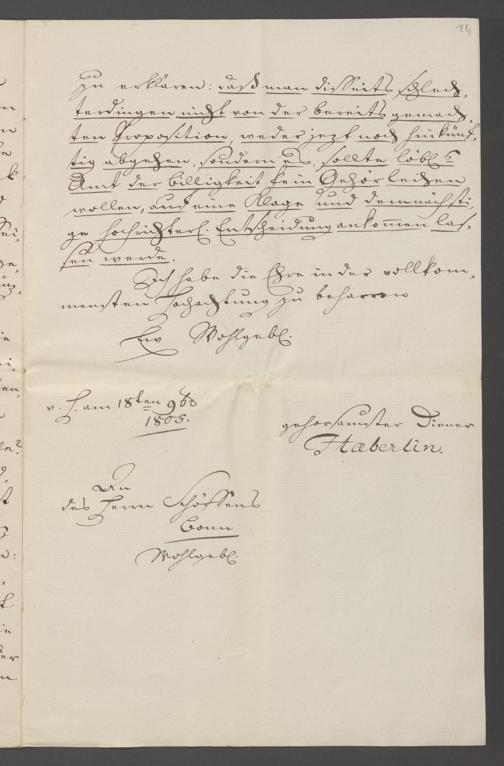 14
zu erklären: daß man disseits schlech,
terdingen nicht von der bereits gemach,
ten Proposition weder jezt noch hinkünf,
tig abgehen, sondern es, sollte löbl.
Amt der billigkeit kein Gehör leihen
wollen, auf eine Klage und demnächsti,
ge hochrichterl. Entscheidung ankommen las,
sen werde.
Ich habe die Ehre in der vollkom,
mensten Hochachtung zu beharren
Ew Wohlgebl.
v. H. am 18ten 9br
1805.
gehorsamster Diener
Haberlin.
An
des Herrn Schöffens
Wohlgebl.